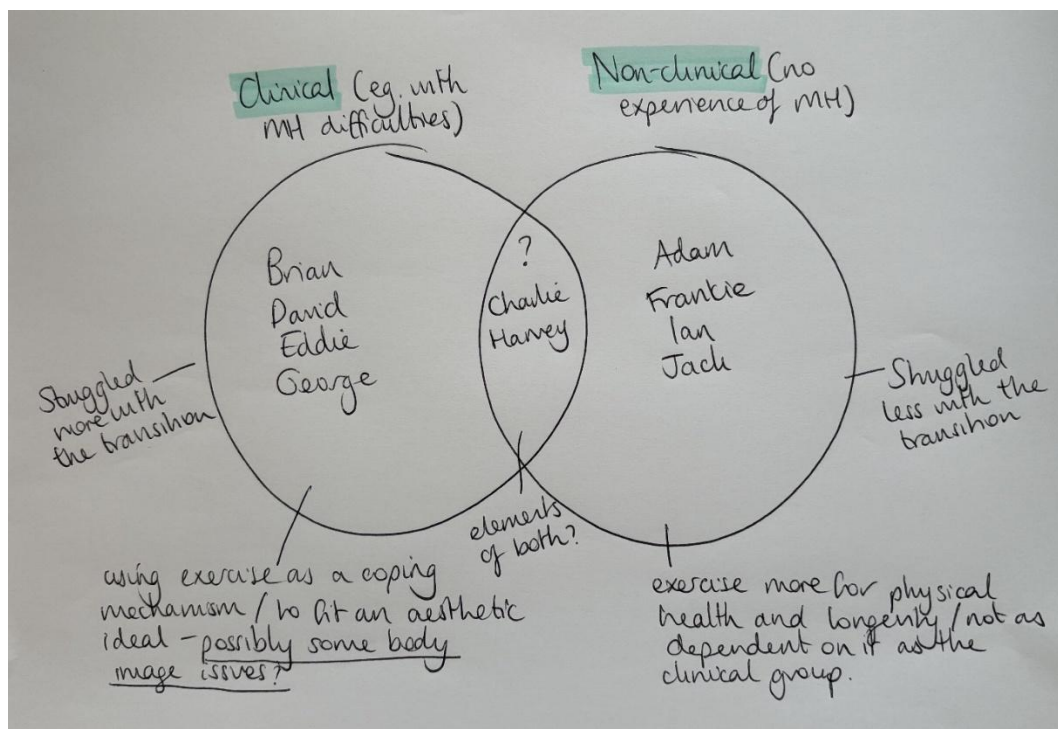 Clinical (eg. with
MH difficulties)
Non-clinical (no
experience of MH)
Brian
David
Eddie
George
?
Charlie
Harvey
Adam
Frankie
Ian
Jack
Struggled
more with
the transition
Struggled
less with the
transition
elements
of both?
using exercise as a coping
mechanism / to fit an aesthetic
ideal - possibly some body
image issues?
exercise more for physical
health and longevity / not as
dependent on it as the
clinical group.